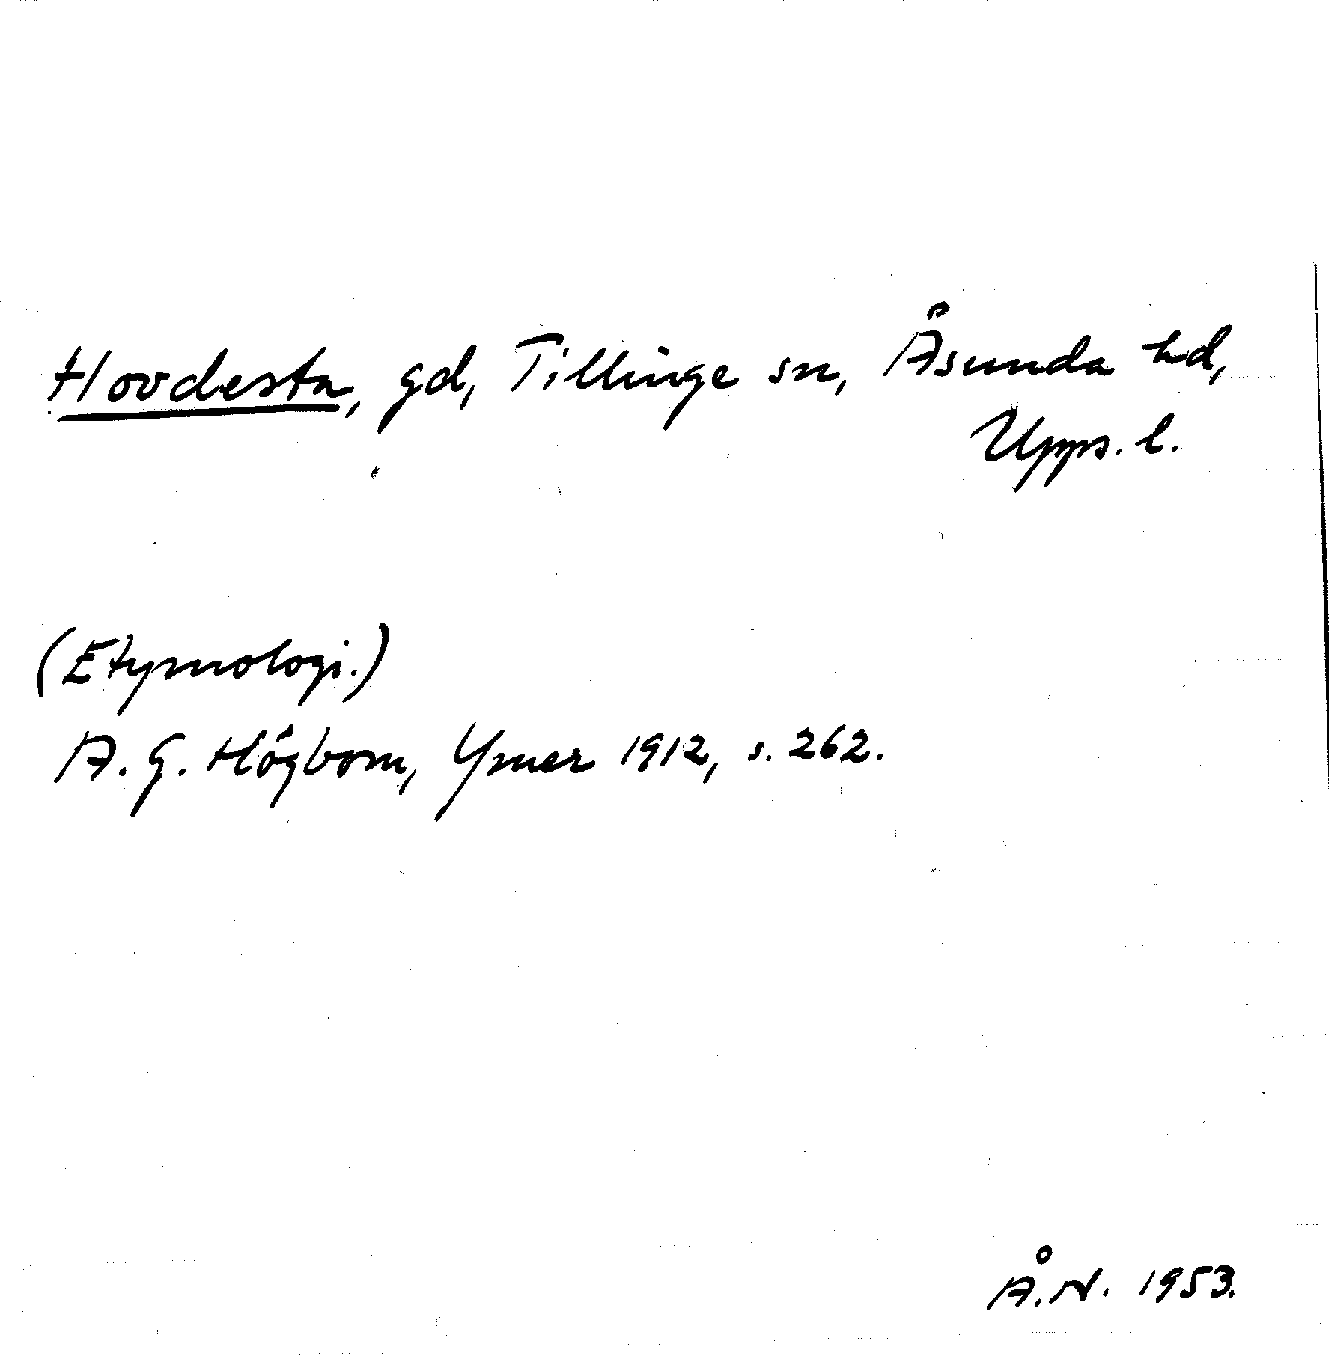 Hovdesta, gd, Tillinge sn, Åsunda hd,
Upps. l.
(Etymologi.)
A. G. Högbom, Ymer 1912, s. 262.
Å. N. 1953.